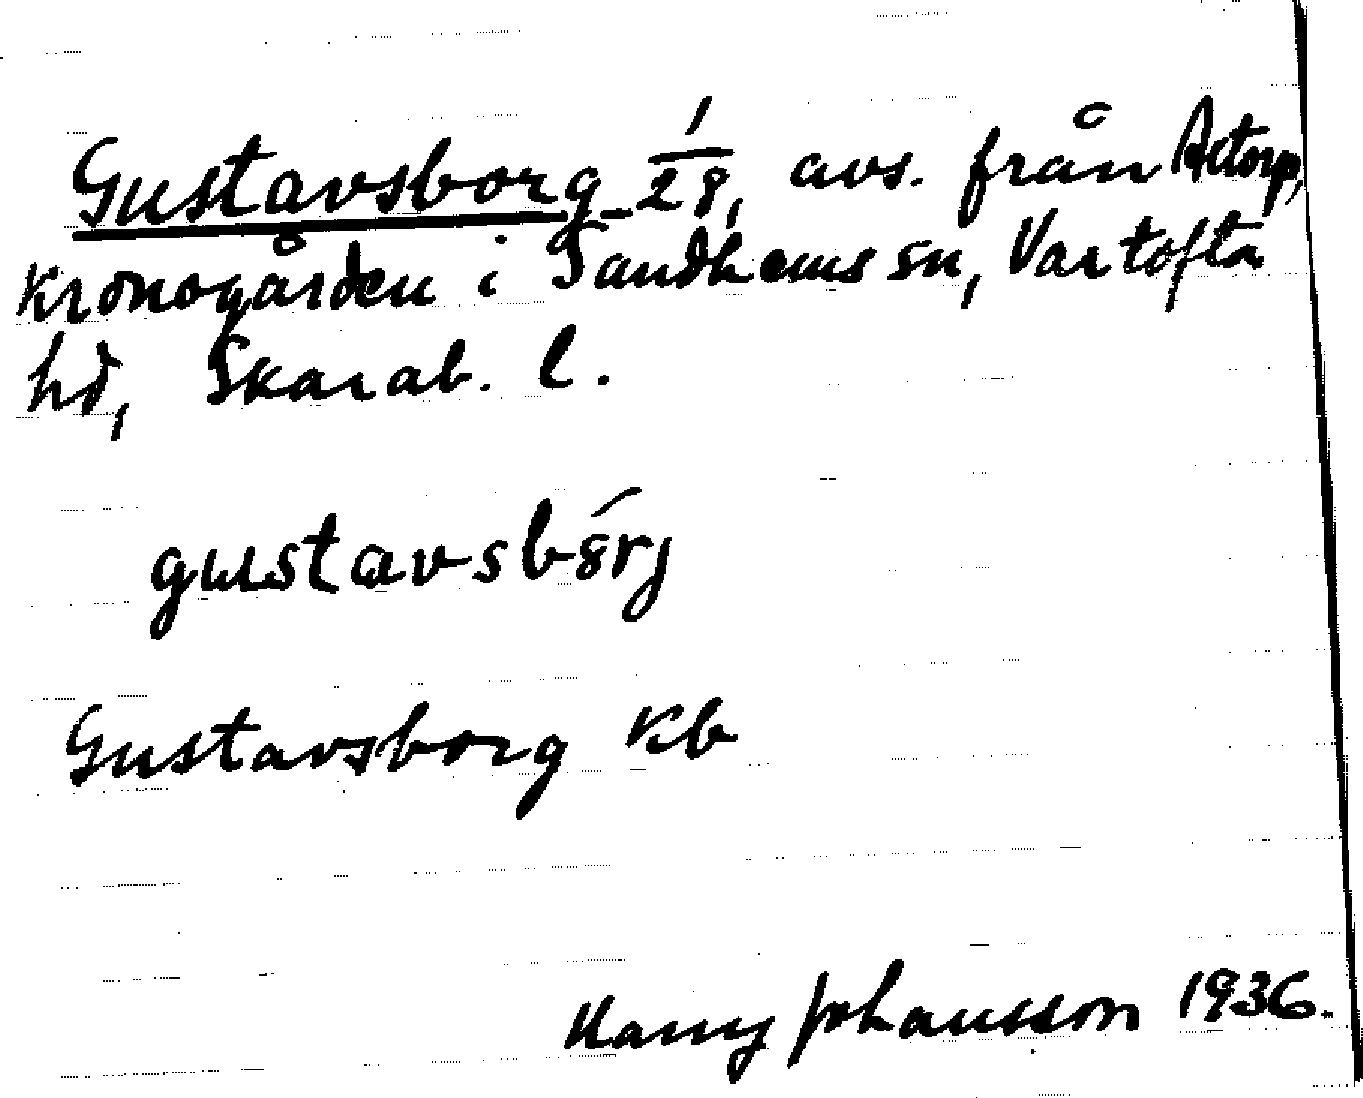 Gustavsborg 1/28, avs. från Attorp,
Kronogården i Sandhems sn, Vartofta
hd, Skarab. l.
gustavsbórj
Gustavsborg Kb
Harry Johansson 1936.